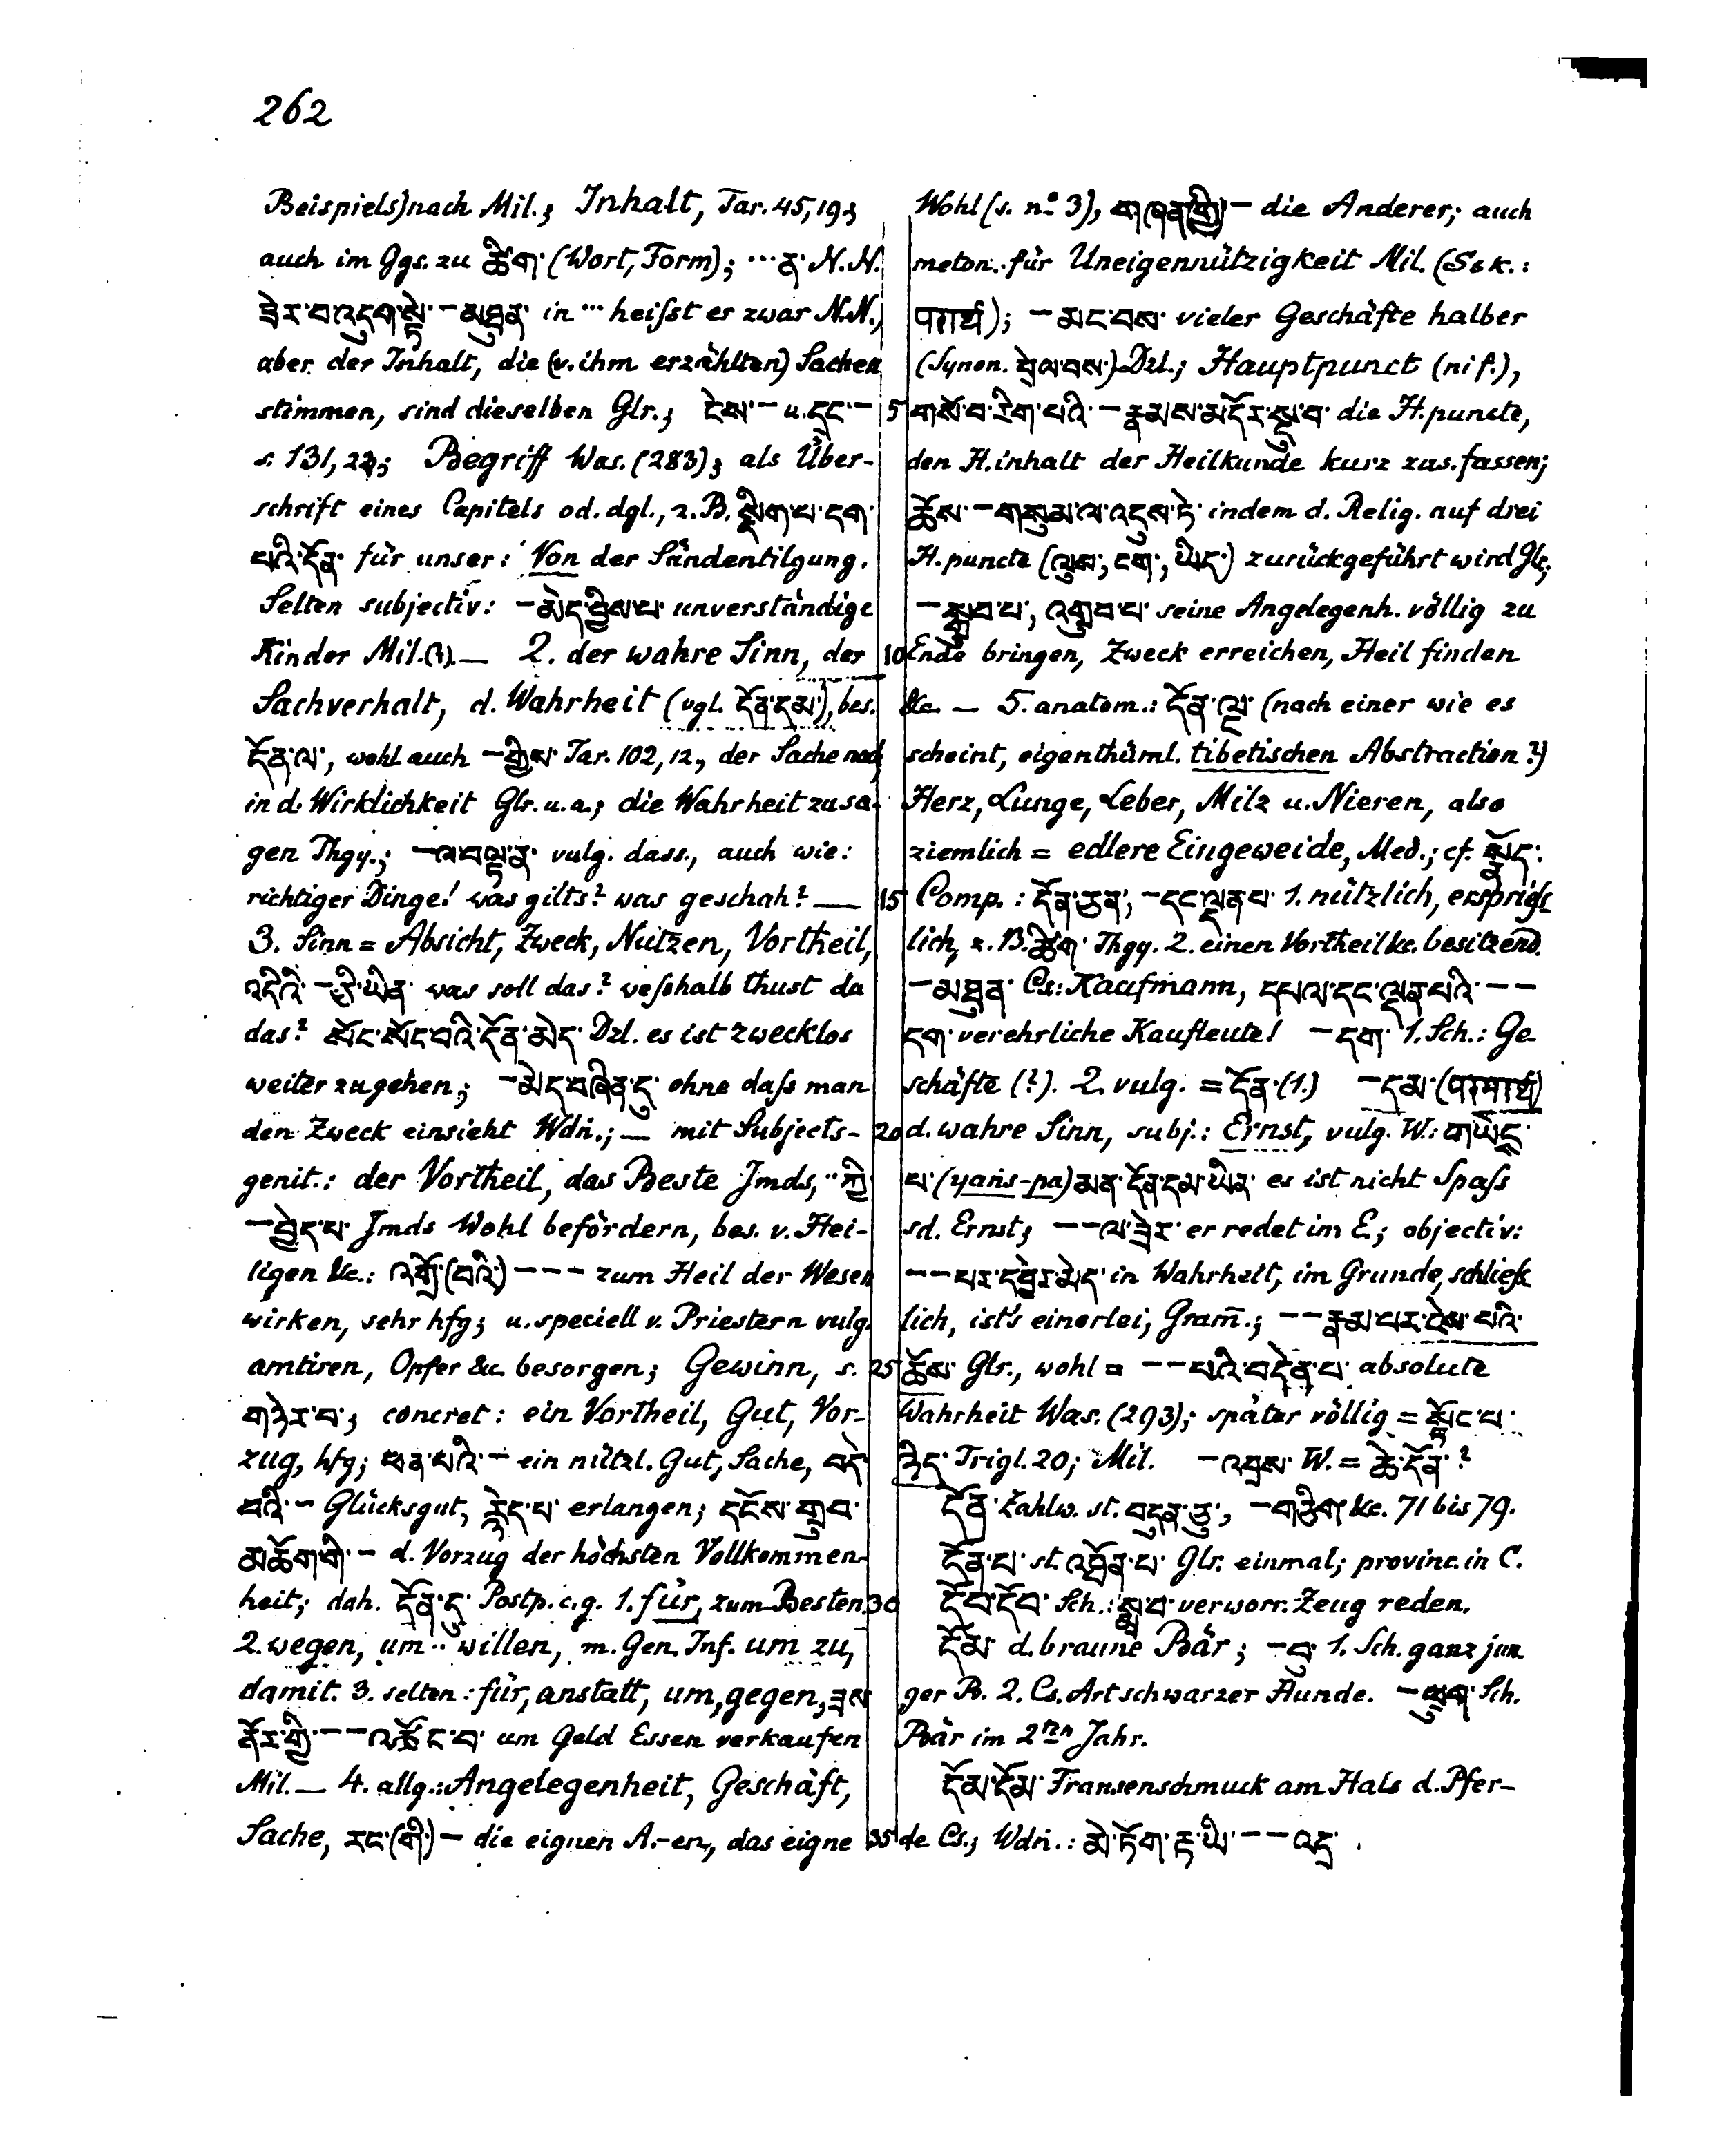 262
Beispiels) nach Mil.; Inhalt, Tar. 45,19;
auch im Ggs. zu ཚིག་ (Wort, Form); ··· ན་ N.N.
ཟེར་བ་འདུག་སྟེ་ – མཐུན་ in ··· heißst er zwar N.N.,
aber der Inhalt, die (v. ihm erzählten) Sachen
stimmen, sind dieselben Glr.; ངེས་ – u. དྲང་ –
s. 131, 23; Begriff Was. (283); als Über-
schrift eines Capitels od. dgl., z. B. སྡིག་པ་དག་
པའི་དོན་ für unser: Von der Sündentilgung.
Selten subjectiv: – མེད་བྱིས་པ་ unverständige
Kinder Mil. (?). — 2. der wahre Sinn, der
Sachverhalt, d. Wahrheit (vgl. དོན་དམ་), bes.
དོན་ལ་, wohl auch – གྱིས་ Tar. 102, 12, der Sache nach,
in d. Wirklichkeit Glr. u. a.; die Wahrheit zu sa-
gen Thgy.; – ལ་བལྟ་ན་ vulg. dass., auch wie:
richtiger Dinge! was gilts? was geschah? —
3. Sinn = Absicht, Zweck, Nutzen, Vortheil,
འདིའི་ – ཅི་ཡིན་ was soll das? weßhalb thust da
das? སོང་སོང་བའི་དོན་མེད་ Dzl. es ist zwecklos
weiter zu gehen; – མེད་བཞིན་དུ་ ohne daß man
den Zweck einsieht Wdn.; — mit Subjects-
genit.: der Vortheil, das Beste Jmds, ·· ཀྱི་
– བྱེད་པ་ Jmds Wohl befördern, bes. v. Hei-
ligen &c.: འགྲོ་(བའི་) – – – zum Heil der Wesen
wirken, sehr hfg; u. speciell v. Priestern vulg.
amtiren, Opfer &c. besorgen; Gewinn, s.
གཉེར་བ་; concret: ein Vortheil, Gut, Vor-
zug, hfg; ཕན་པའི་ – ein nützl. Gut, Sache, བདེ་
བའི་ – Glücksgut, རྙེད་པ་ erlangen; དངོས་གྲུབ་
མཆོག་གི་ – d. Vorzug der höchsten Vollkommen-
heit; dah. དོན་དུ་ Postp. c. g. 1. für, zum Besten.
2. wegen, um ·· willen, m. Gen. Inf. um zu,
damit. 3. selten: für, anstatt, um, gegen, ཟས་
ནོར་གྱི་ – – འཚོང་བ་ um Geld Essen verkaufen
Mil. — 4. allg.: Angelegenheit, Geschäft,
Sache, རང་(གི་) – die eignen A.-en, das eigne
Wohl (s. no 3), གཞན་(གྱི་) – die Anderer; auch
meton. für Uneigennützigkeit Mil. (Ssk.:
परार्थ); – མང་བས་ vieler Geschäfte halber
(Synon. བྲེལ་བས་) Dzl.; Hauptpunct (nif.),
5 གསོ་བ་རིག་པའི་ – རྣམས་མདོར་སྡུ་བ་ die H.puncte,
den H.inhalt der Heilkunde kurz zus. fassen;
ཆོས་ – གསུམ་ལ་འདུས་ཏེ་ indem d. Relig. auf drei
H.puncte (ལུས་, ངག་, ཡིད་) zurückgeführt wird Glr.;
– སྒྲུབ་པ་, འགྲུབ་པ་ seine Angelegenh. völlig zu
10 Ende bringen, Zweck erreichen, Heil finden
&c. — 5. anatom.: དོན་ལྔ་ (nach einer wie es
scheint, eigenthüml. tibetischen Abstraction?)
Herz, Lunge, Leber, Milz u. Nieren, also
ziemlich = edlere Eingeweide, Med.; cf. སྣོད་.
15 Comp.: དོན་ཅན་, – དང་ལྡན་པ་ 1. nützlich, ersprieß-
lich, z. B. ཚིག་ Thgy. 2. einen Vortheil &c. besitzend.
– མཐུན་ Cs.: Kaufmann, དཔལ་དང་ལྡན་པའི་ – –
དག་ verehrliche Kaufleute! – དག་ 1. Sch.: Ge-
schäfte (?). 2. vulg. = དོན་ (1.) – དམ་ (परमार्थ)
20 d. wahre Sinn, subj.: Ernst, vulg. W.: གཡང་
པ་ (yaṅs-pa) མན་དོན་དམ་ཡིན་ es ist nicht Spaß
sd. Ernst; – – ལ་ཟེར་ er redet im E.; objectiv:
– – པར་དབྱེར་མེད་ in Wahrheit, im Grunde, schließ-
lich, ist's einerlei, Gram̄.; – – རྣམ་པར་ངེས་པའི་
25 ཆོས་ Glr., wohl = – – པའི་བདེན་པ་ absolute
Wahrheit Was. (293); später völlig = སྟོང་པ་
ཉིད་ Trigl. 20; Mil. – འབྲས་ W. = ཆེ་དོན་?
དོན་ Zahlw. st. བདུན་ཅུ་, – གཅིག་ &c. 71 bis 79.
དོན་པ་ st. འཐོན་པ་ Glr. einmal; provinc. in C.
30 དོབ་དོབ་ Sch.: སྨྲ་བ་ verworr. Zeug reden.
དོམ་ d. braune Bär; – བུ་ 1. Sch. ganz jun-
ger B. 2. Cs. Art schwarzer Hunde. – ཕྲུག་ Sch.
Bär im 2ten Jahr.
དོམ་དོམ་ Fransenschmuck am Hals d. Pfer-
35 de Cs.; Wdn.: མེ་ཏོག་རྟ་ཡི་ – – འདྲ་